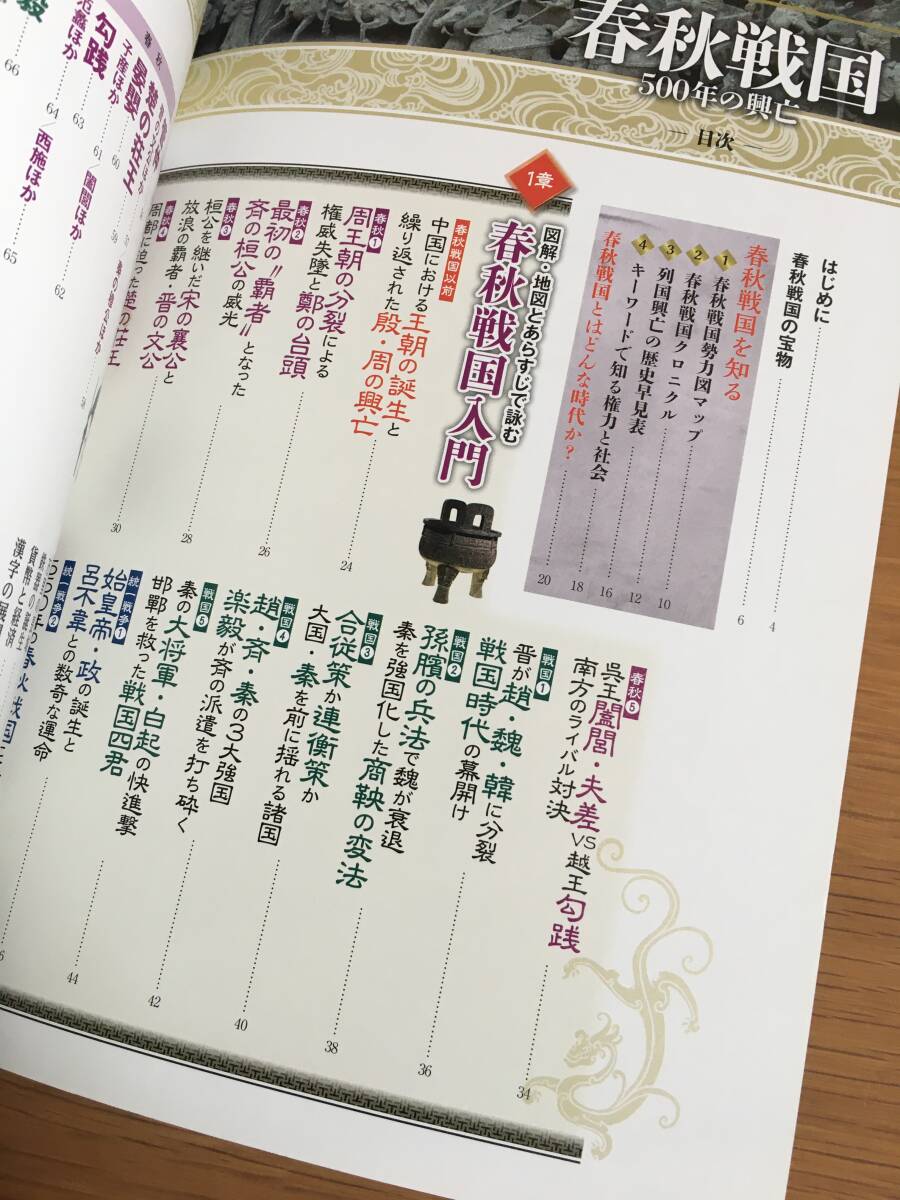 春秋戦国
500年の興亡
目次
はじめに
4
春秋戦国の宝物
6
春秋戦国を知る
1 春秋戦国勢力図マップ
10
2 春秋戦国クロニクル
12
3 列国興亡の歴史早見表
16
4 キーワードで知る権力と社会
18
春秋戦国とはどんな時代か?
20
1章
図解・地図とあらすじで詠む
春秋戦国入門
春秋戦国以前
中国における王朝の誕生と
繰り返された殷・周の興亡
24
春秋1
周王朝の分裂による
権威失墜と鄭の台頭
26
春秋2
最初の"覇者"となった
斉の桓公の威光
28
春秋3
桓公を継いだ宋の襄公と
放浪の覇者・晋の文公
30
春秋4
周都に迫った楚の荘王
春秋5
呉王闔閭・夫差vs越王勾践
南方のライバル対決
34
戦国1
晋が趙・魏・韓に分裂
戦国時代の幕開け
36
戦国2
孫臏の兵法で魏が衰退
秦を強国化した商鞅の変法
38
戦国3
合従策か連衡策か
大国・秦を前に揺れる諸国
40
戦国4
趙・斉・秦の3大強国
楽毅が斉の派遣を打ち砕く
42
戦国5
秦の大将軍・白起の快進撃
邯鄲を救った戦国四君
44
統一戦争1
始皇帝・政の誕生と
呂不韋との数奇な運命
統一戦争2
貨幣と経済
漢字の展
春秋
楚の荘王
晏嬰
60
子産ほか
61
闔閭ほか
62
勾践
63
范蠡ほか
64
西施ほか
65
毅
66